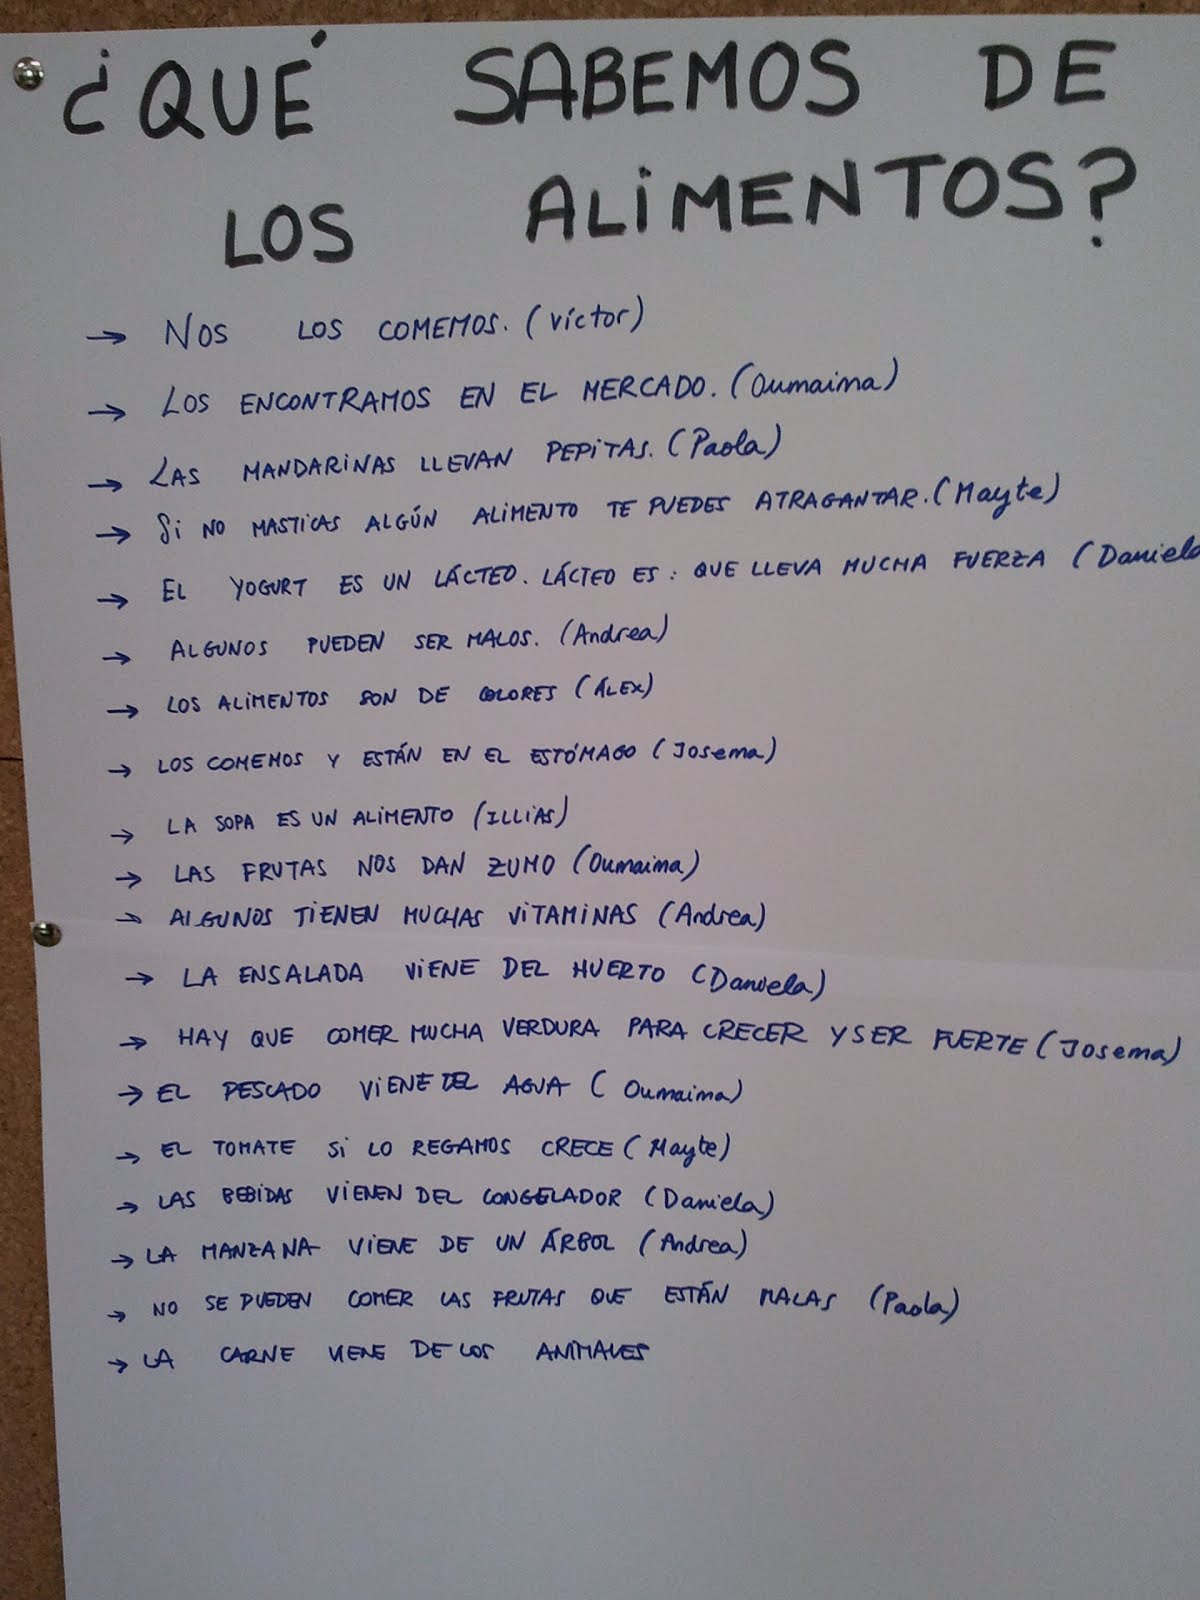 ¿QUÉ SABEMOS DE
LOS ALIMENTOS?
→ NOS LOS COMEMOS. (Víctor)
→ LOS ENCONTRAMOS EN EL MERCADO. (Oumaima)
→ LAS MANDARINAS LLEVAN PEPITAS. (Paola)
→ Si NO MASTICAS ALGÚN ALIMENTO TE PUEDES ATRAGANTAR. (Mayte)
→ EL YOGURT ES UN LÁCTEO. LÁCTEO ES: QUE LLEVA MUCHA FUERZA (Daniela
→ ALGUNOS PUEDEN SER MALOS. (Andrea)
→ LOS ALIMENTOS SON DE COLORES (ÁLEX)
→ LOS COMEMOS Y ESTÁN EN EL ESTÓMAGO (Josema)
→ LA SOPA ES UN ALIMENTO (ILLIAS)
→ LAS FRUTAS NOS DAN ZUMO (Oumaima)
→ ALGUNOS TIENEN MUCHAS VITAMINAS (Andrea)
→ LA ENSALADA VIENE DEL HUERTO (Daniela)
→ HAY QUE COMER MUCHA VERDURA PARA CRECER Y SER FUERTE (Josema)
→ EL PESCADO VIENE DEL AGUA (Oumaima)
→ EL TOMATE SI LO REGAMOS CRECE (Mayte)
→ LAS BEBIDAS VIENEN DEL CONGELADOR (Daniela)
→ LA MANZANA VIENE DE UN ÁRBOL (Andrea)
→ NO SE PUEDEN COMER LAS FRUTAS QUE ESTÁN MALAS (Paola)
→ LA CARNE VIENE DE LOS ANIMALES